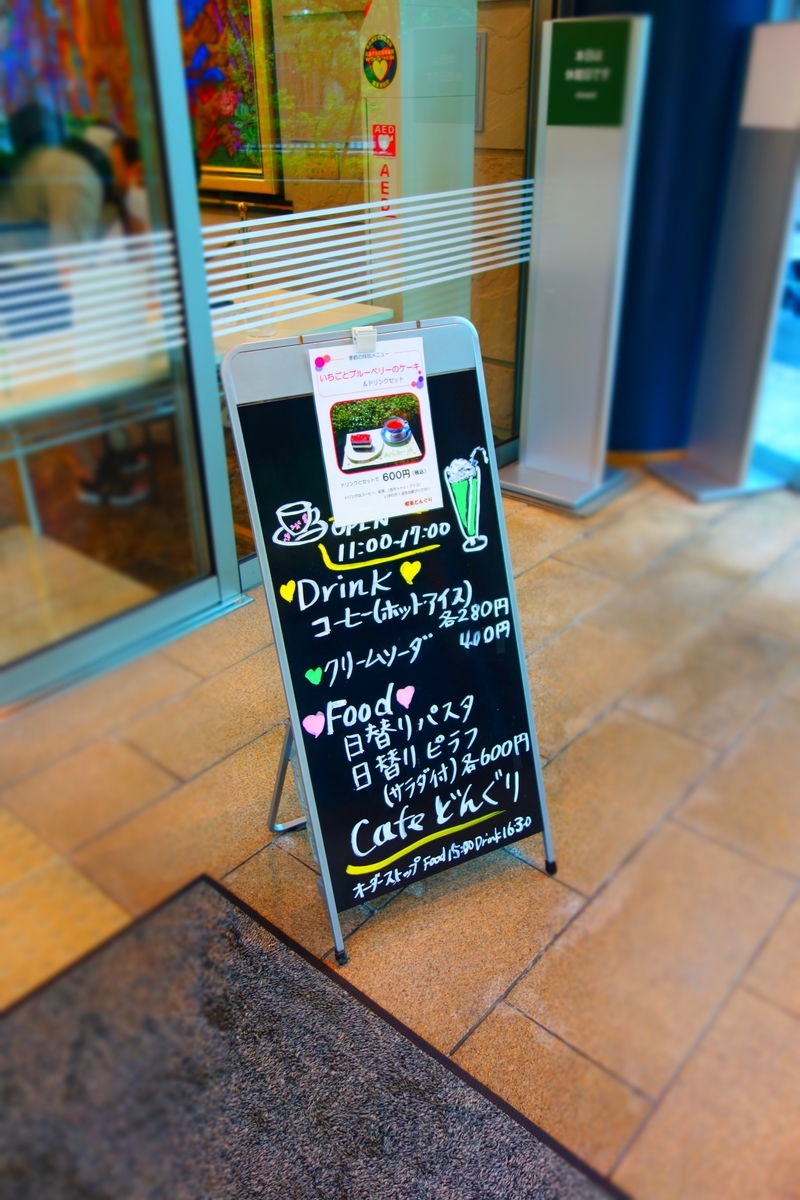 AED
A
E
D
本日は
休館日です
季節の特別メニュー
いちごとブルーベリーのケーキ
&ドリンクセット
ドリンクとセットで 600円(税込)
喫茶どんぐり
OPEN
11:00~17:00
Drink
コーヒー(ホットアイス)
各280円
400円
クリームソーダ
Food
日替りパスタ
日替りピラフ
(サラダ付)各600円
Cafe どんぐり
オーダーストップ Food 15:00 Drink 16:30